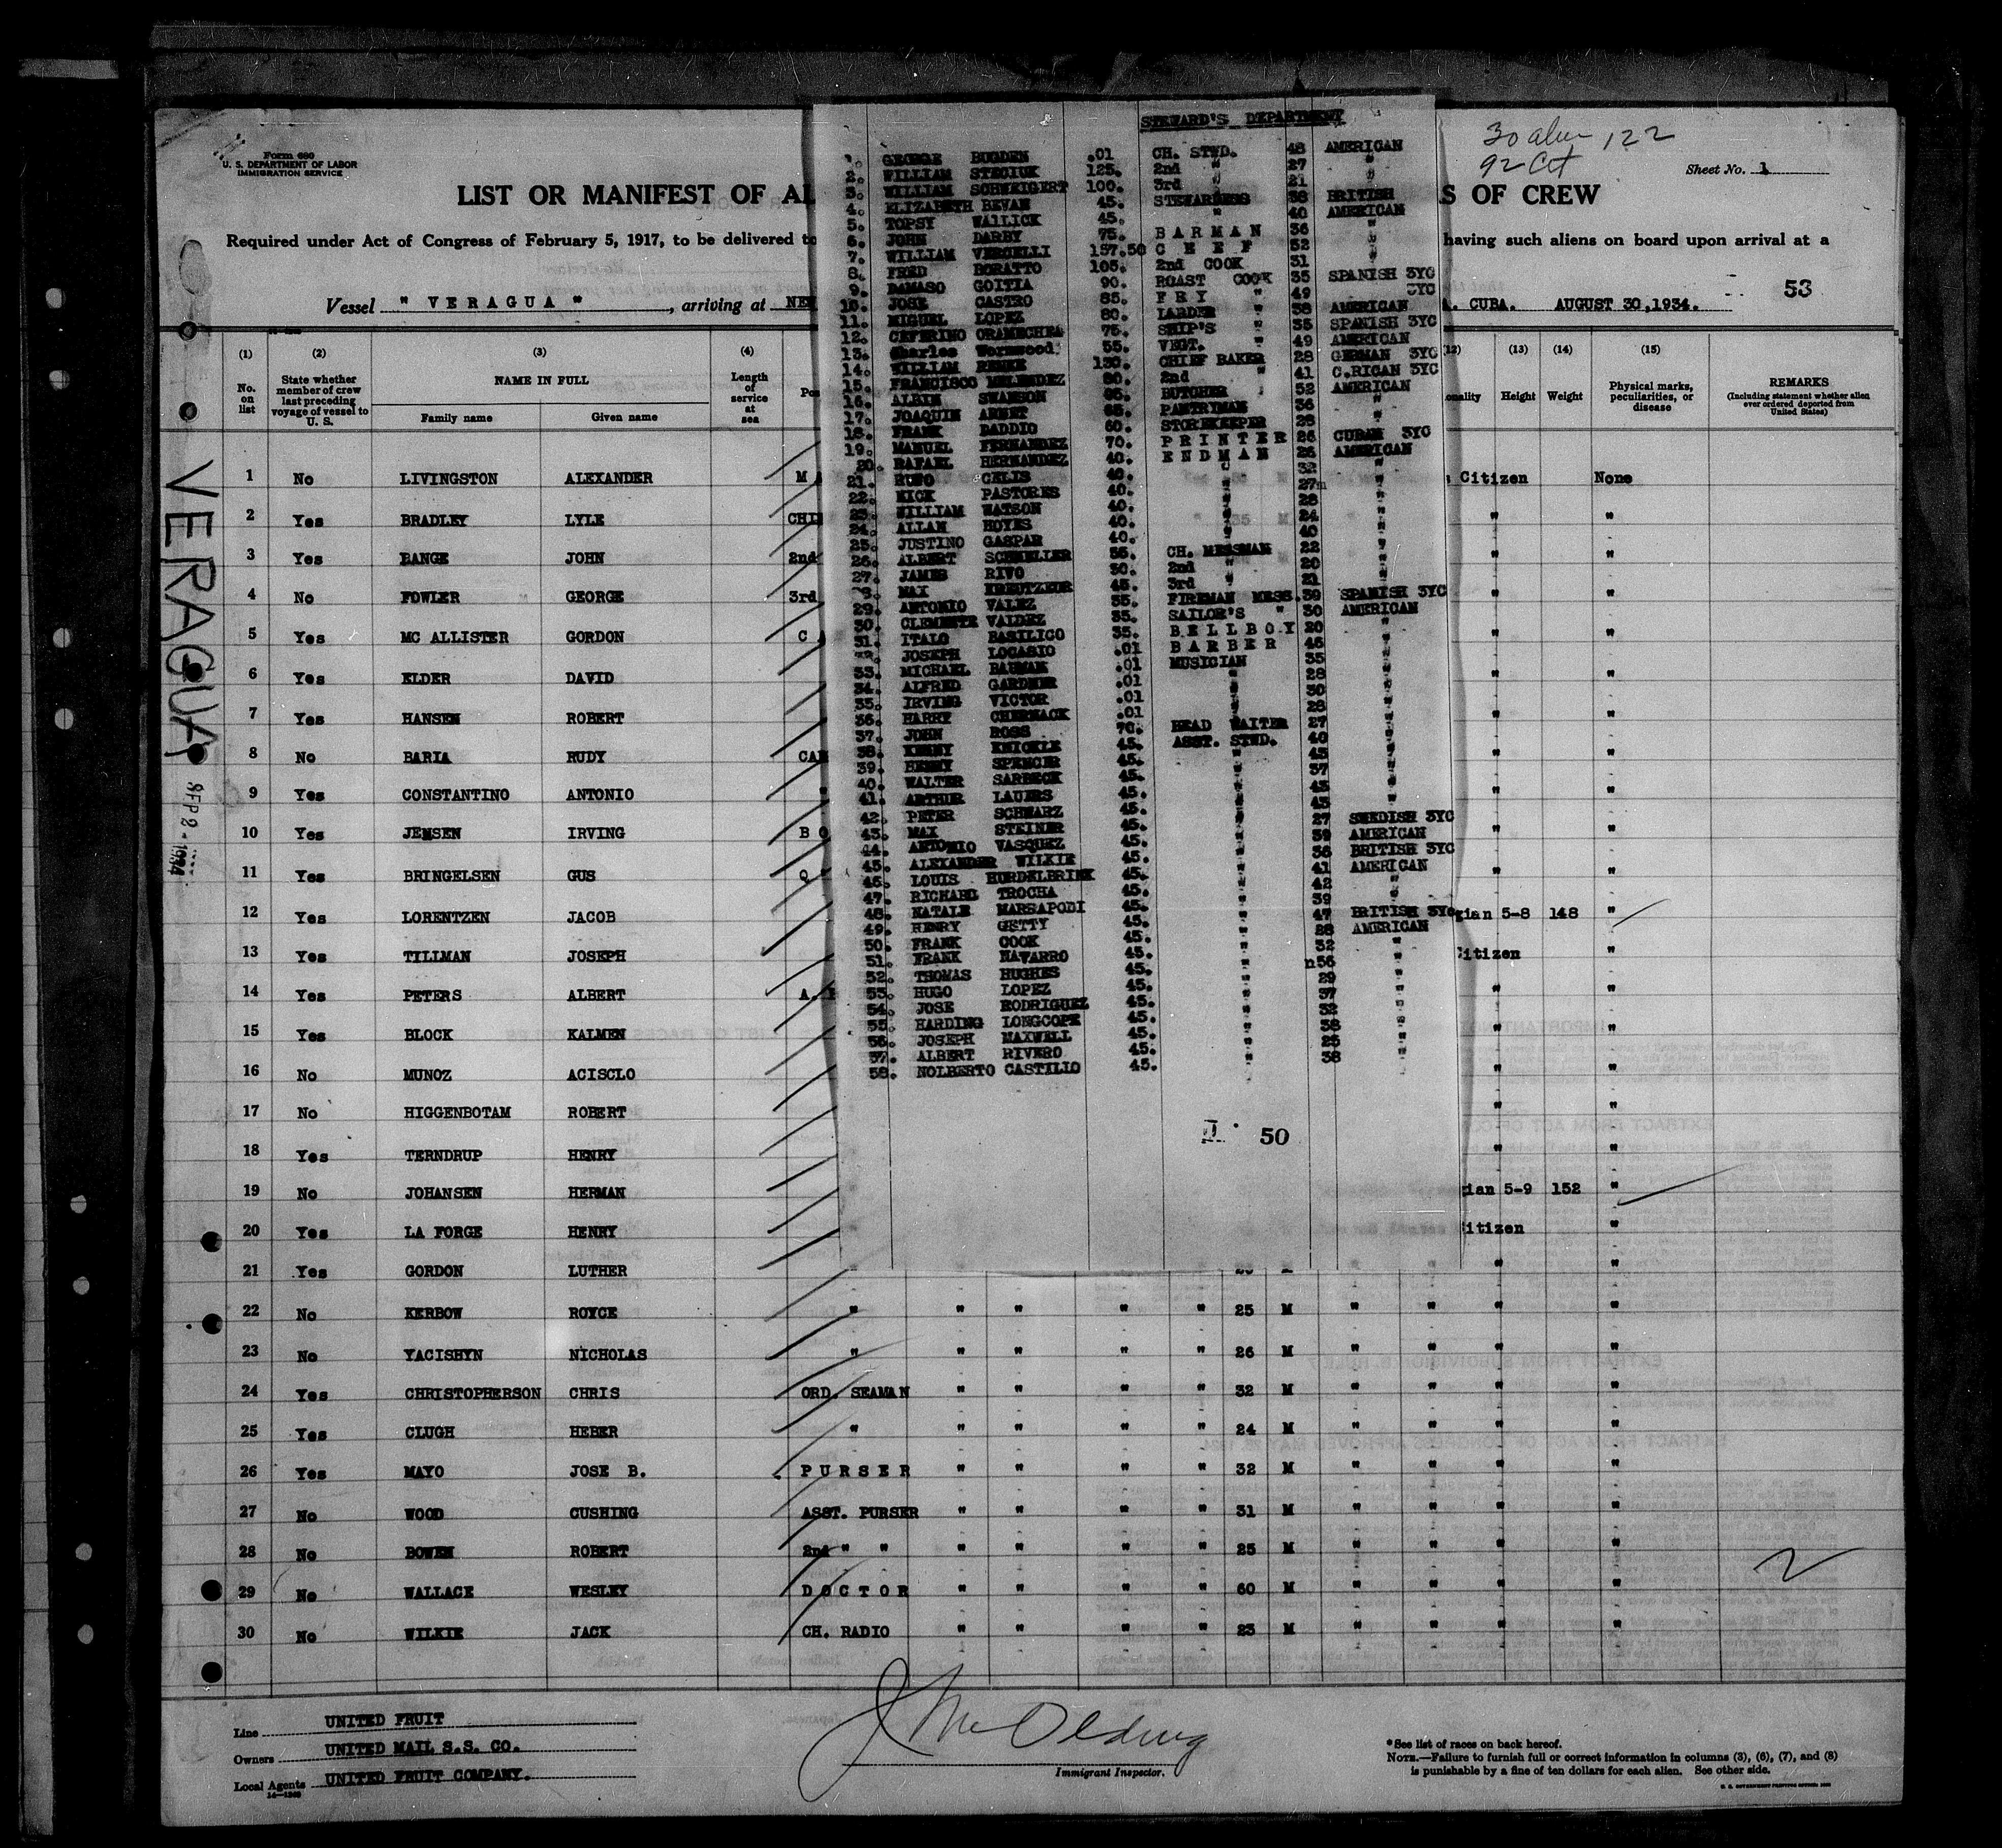 Form 680
U. S. DEPARTMENT OF LABOR
IMMIGRATION SERVICE
30 alien 122
92 Cit
Sheet No. 1
LIST OR MANIFEST OF AL
S OF CREW
Required under Act of Congress of February 5, 1917, to be delivered to
having such aliens on board upon arrival at a
53
Vessel " VERAGUA ", arriving at NEW
CUBA. AUGUST 30,1934.
(1) (2) (3) (4) (12) (13) (14) (15)
No. on list
State whether member of crew last preceding voyage of vessel to U. S.
NAME IN FULL
Family name Given name
Length of service at sea
Height Weight
Physical marks, peculiarities, or disease
REMARKS
(Including statement whether alien ever ordered deported from United States)
1 No LIVINGSTON ALEXANDER Citizen None
2 Yes BRADLEY LYLE " "
3 Yes BANGE JOHN 2nd " "
4 No FOWLER GEORGE 3rd " "
5 Yes MC ALLISTER GORDON " "
6 Yes ELDER DAVID " "
7 Yes HANSEN ROBERT " "
8 No BARIA RUDY " "
9 Yes CONSTANTINO ANTONIO " "
10 Yes JENSEN IRVING " "
11 Yes BRINGELSEN GUS " "
12 Yes LORENTZEN JACOB gian 5-8 148 "
13 Yes TILLMAN JOSEPH Citizen "
14 Yes PETERS ALBERT " "
15 Yes BLOCK KALMEN " "
16 No MUNOZ ACISCLO " "
17 No HIGGENBOTAM ROBERT " "
18 Yes TERNDRUP HENRY " "
19 No JOHANSEN HERMAN gian 5-9 152 "
20 Yes LA FORGE HENRY Citizen "
21 Yes GORDON LUTHER " "
22 No KERBOW ROYCE " " " " " 25 M " " " "
23 No YACISHYN NICHOLAS " " " " " 26 M " " " "
24 Yes CHRISTOPHERSON CHRIS ORD. SEAMAN " " " " 32 M " " " "
25 Yes CLUGH HEBER " " " " " 24 M " " " "
26 Yes MAYO JOSE B. PURSER " " " " 32 M " " " "
27 No WOOD CUSHING ASST. PURSER " " " " 31 M " " " "
28 No BOWEN ROBERT 2nd " " " " " " 25 M " " " "
29 No WALLACE WESLEY DOCTOR " " " " 60 M " " " "
30 No WILKIE JACK CH. RADIO " " " " 23 M " " " "
VERAGUA
SEP 2 - 1934
STEWARD'S DEPARTMENT
1. GEORGE BUGDEN .01 CH. STWD. 48 AMERICAN
2. WILLIAM STECIUK 125. 2nd " 27 "
3. WILLIAM SCHWEIGERT 100. 3rd " 21 "
4. ELIZABETH BEVAN 45. STEWARDESS 38 BRITISH
5. TOPSY WALLICK 45. " 40 AMERICAN
6. JOHN DARBY 75. BARMAN 36 "
7. WILLIAM VERCELLI 157.50 CHEF 52 "
8. FRED BORATTO 105. 2nd COOK 31 "
9. DAMASO GOITIA 90. ROAST COOK 35 SPANISH 3YC
10. JOSE CASTRO 85. FRY " 49 3YC
11. MIGUEL LOPEZ 80. LARDER " 38 AMERICAN
12. CEFERINO ORAMECHEA 75. SHIP'S " 35 SPANISH 3YC
13. Charles Wormwood 55. VEGT. " 49 AMERICAN
14. WILLIAM BENKE 130. CHIEF BAKER 28 GERMAN 3YC
15. FRANCISCO MELENDEZ 80. 2nd " 41 C.RICAN 3YC
16. ALBIN SWANSON 85. BUTCHER 52 AMERICAN
17. JOAQUIN ARNET 65. PANTRYMAN 36 "
18. FRANK DADDIO 60. STOREKEEPER 28 "
19. MANUEL FERNANDEZ 70. PRINTER 26 CUBAN 3YC
20. RAFAEL HERNANDEZ 40. ENDMAN 26 AMERICAN
21. RUFO CELIS 40. " 32 "
22. NICK PASTORES 40. " 27 "
23. WILLIAM WATSON 40. " 28 "
24. ALLAN HOYES 40. " 24 "
25. JUSTINO GASPAR 40. " 40 "
26. ALBERT SCHNELLER 55. CH. MESSMAN 22 "
27. JAMES RIVO 50. 2nd " 20 "
28. MAX KREUTZEUR 45. 3rd " 21 "
29. ANTONIO VALEZ 35. FIREMAN MESS. 39 SPANISH 3YC
30. CLEMENTE VALDEZ 35. SAILOR'S " 30 AMERICAN
31. ITALO BASILICO 35. BELLBOY 20 "
32. JOSEPH LOCASIO .01 BARBER 46 "
33. MICHAEL BAUMAN .01 MUSICIAN 35 "
34. ALFRED GARDNER .01 " 28 "
35. IRVING VICTOR .01 " 30 "
36. HARRY CHERNACK .01 " 28 "
37. JOHN ROSS 70. HEAD WAITER 27 "
38. KENNY KNICKLE 45. ASST. STWD. 40 "
39. HENRY SPENCER 45. " 45 "
40. WALTER SARBECK 45. " 37 "
41. ARTHUR LAUERS 45. " 43 "
42. PETER SCHWARZ 45. " 43 "
43. MAX STEINER 45. " 27 SWEDISH 3YC
44. ANTONIO VASQUEZ 45. " 39 AMERICAN
45. ALEXANDER WILKIE 45. " 36 BRITISH 3YC
46. LOUIS HURDELBRINK 45. " 41 AMERICAN
47. RICHARD TROCHA 45. " 42 "
48. NATALE MARSAPODI 45. " 39 "
49. HENRY GETTY 45. " 47 BRITISH 3YC
50. FRANK COOK 45. " 28 AMERICAN
51. FRANK NAVARRO 45. " 32 "
52. THOMAS HUGHES 45. " 56 "
53. HUGO LOPEZ 45. " 29 "
54. JOSE RODRIGUEZ 45. " 37 "
55. HARDING LONGCOPE 45. " 32 "
56. JOSEPH MAXWELL 45. " 38 "
57. ALBERT RIVERO 45. " 25 "
58. NOLBERTO CASTILIO 45. " 38 "
II. 50
Line UNITED FRUIT
Owners UNITED MAIL S.S. CO.
Local Agents UNITED FRUIT COMPANY.
14—1240
Immigrant Inspector.
*See list of races on back hereof.
NOTE.—Failure to furnish full or correct information in columns (3), (6), (7), and (8)
is punishable by a fine of ten dollars for each alien. See other side.